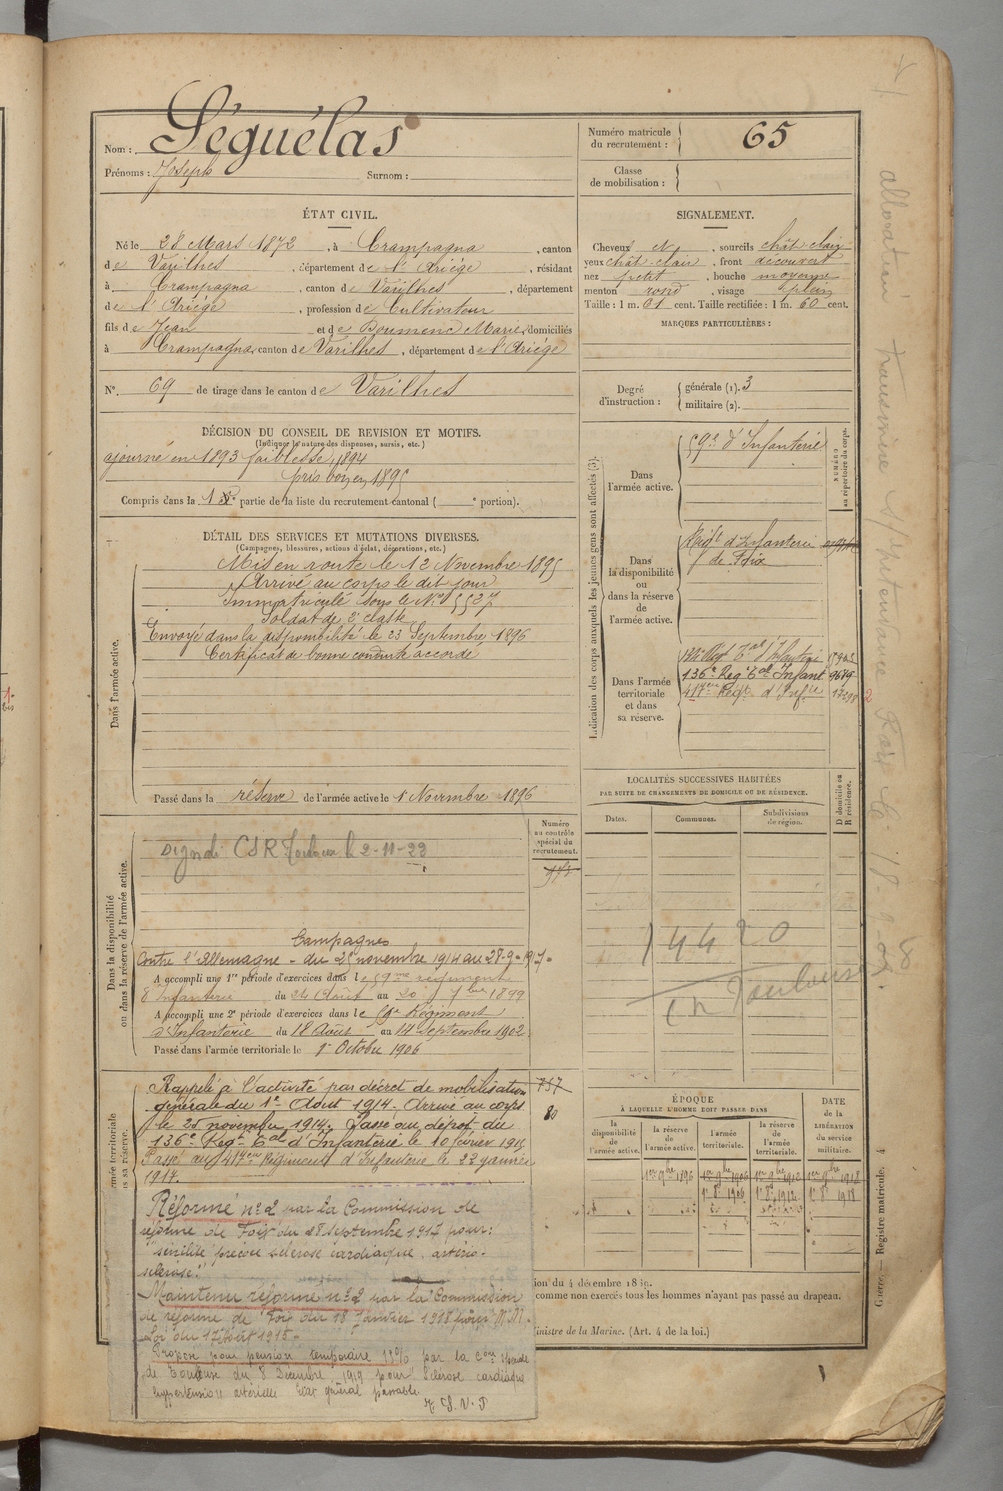 Nom : Séguélas
Prénoms : Joseph Surnom :
Numéro matricule du recrutement : 65
Classe de mobilisation :
ÉTAT CIVIL.
Né le 28 Mars 1872, à Crampagna, canton
de Varilhes, département de l'Ariège, résidant
à Crampagna, canton de Varilhes, département
de l'Ariège, profession de Cultivateur
fils de Jean et de Doumenc Marie, domiciliés
à Crampagna, canton de Varilhes, département de l'Ariège
N°. 69 de tirage dans le canton de Varilhes
SIGNALEMENT.
Cheveux N, sourcils chât-clair
yeux chât-clair, front découvert
nez petit, bouche moyenne
menton rond, visage plein
Taille : 1 m. 61 cent. Taille rectifiée : 1 m. 60 cent.
MARQUES PARTICULIÈRES :
Degré d'instruction : générale (1). 3
militaire (2).
DÉCISION DU CONSEIL DE REVISION ET MOTIFS.
(Indiquer la nature des dispenses, sursis, etc.)
ajourné en 1893 faiblesse, 1894
pris bon en 1895
Compris dans la 1 e partie de la liste du recrutement cantonal ( e portion).
DÉTAIL DES SERVICES ET MUTATIONS DIVERSES.
(Campagnes, blessures, actions d'éclat, décorations, etc.)
Dans l'armée active.
Mis en route le 12 Novembre 1895
Arrivé au corps le dit jour
Immatriculé sous le N° 5527
Soldat de 2e classe
Envoyé dans la disponibilité le 23 Septembre 1896
Certificat de bonne conduite accordé
Passé dans la réserve de l'armée active le 1 Novembre 1896
Indication des corps auxquels les jeunes gens sont affectés (3).
NUMÉRO au répertoire du corps.
Dans l'armée active.
59e d'Infanterie
Dans la disponibilité ou dans la réserve de l'armée active.
Régt d'Infanterie
de Foix
Dans l'armée territoriale et dans sa réserve.
Régt Tal d'Infanterie
136e Regt Tal Infant 9679
417eme Regt d'Infie
2
LOCALITÉS SUCCESSIVES HABITÉES
PAR SUITE DE CHANGEMENTS DE DOMICILE OU DE RÉSIDENCE.
Dates. Communes. Subdivisions de région. D domicile ou R résidence.
14420
CR Toulouse
Dans la disponibilité ou dans la réserve de l'armée active.
Numéro au contrôle spécial du recrutement.
CSR Toulouse le 2-11-22
Campagnes
Contre l'Allemagne - du 25 novembre 1914 au 28-9-1917-
A accompli une 1re période d'exercices dans le 59me régiment
d'Infanterie du 24 Août au 20 7bre 1899
A accompli une 2e période d'exercices dans le Régiment
d'Infanterie du 18 Août au 14 Septembre 1902
Passé dans l'armée territoriale le 1er Octobre 1906
Rappelé à l'activité par décret de mobilisation
générale du 1er Août 1914. Arrivé au corps
le 25 novembre 1914. Passé au dépôt du
136e Regt Tal d'Infanterie le 10 février 1915
Passé au 417eme Régiment d'Infanterie le 22 janvier
1917.
757
80
Réformé n° 2 par la Commission de
réforme de Foix du 28 septembre 1917 pour:
"sénilité précoce sclérose cardiaque artério-
sclérose."
Maintenu réformé n° 2 par la Commission
de réforme de Foix du 18 Janvier 1918
Loi du 17 Août 1915-
Proposé pour pension temporaire par la Com. spéciale
de Toulouse du 8 Décembre 1919 pour "Sclérose cardiaque
hypertension artérielle Etat général passable.
T.S.V.P
ÉPOQUE
À LAQUELLE L'HOMME DOIT PASSER DANS
la disponibilité de l'armée active.
la réserve de l'armée active.
l'armée territoriale.
la réserve de l'armée territoriale.
DATE de la LIBÉRATION du service militaire.
1er 9bre 1896
1er 9bre 1906
1er 9bre 1912
1er 9bre 1918
1er 8e 1906
1er 8e 1912
1er 8e 1918
ion du 4 décembre 1889.
comme non exercés tous les hommes n'ayant pas passé au drapeau.
inistre de la Marine. (Art. 4 de la loi.)
Guerre. — Registre matricule. 4